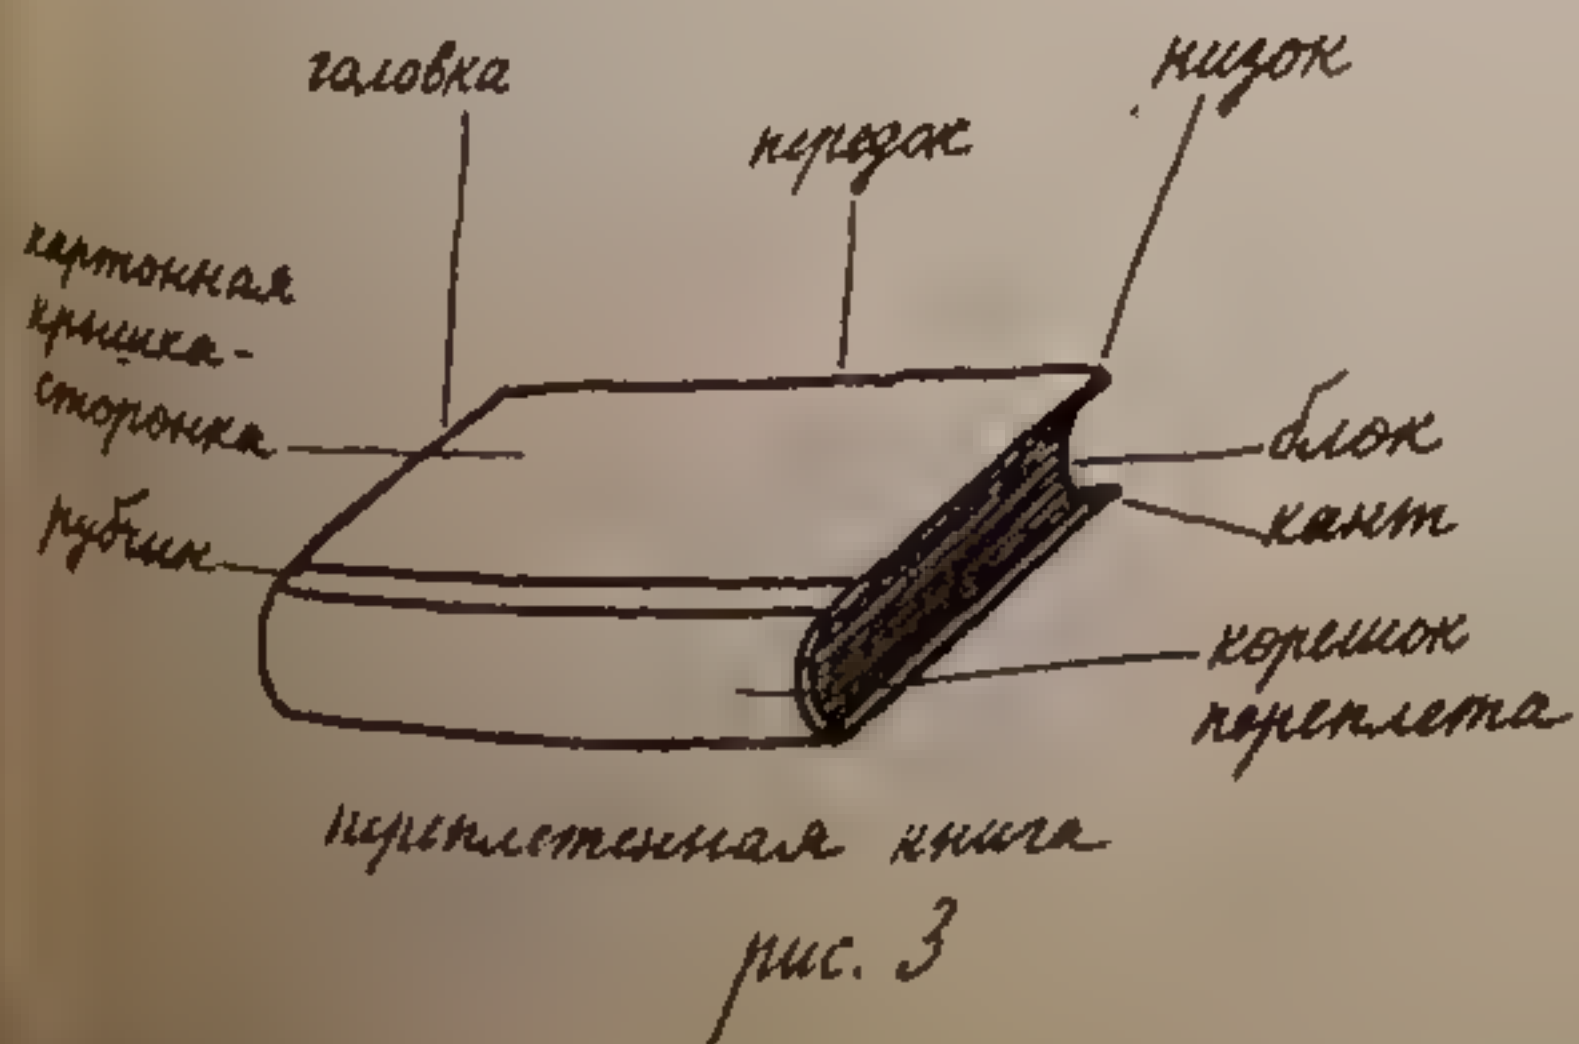 головка
передок
низок
картонная
крышка-
сторонка
рубчик
блок
кант
корешок
переплета
переплетенная книга
рис. 3